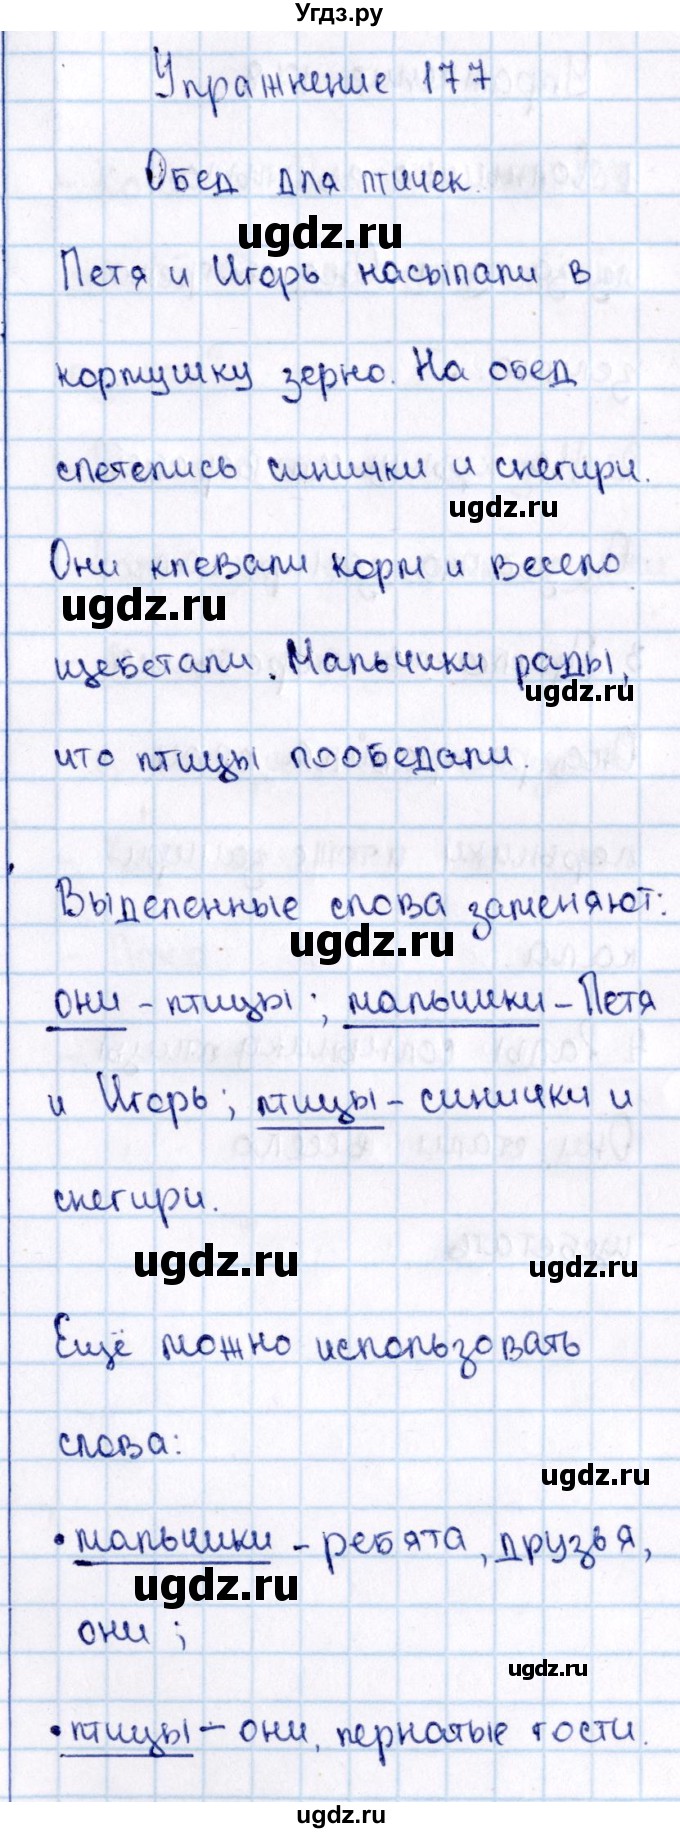 Угдз.ру
Упражнение 177
Обед для птичек.
ugdz.ru
Петя и Игорь насыпали в
кормушку зерно. На обед
слетелись синички и снегири.
ugdz.ru
Они клевали корм и весело
ugdz.ru
щебетали. Мальчики рады,
ugdz.ru
что птицы пообедали.
Выделенные слова заменяют:
ugdz.ru
они - птицы; мальчики - Петя
и Игорь; птицы - синички и
снегири.
ugdz.ru
ugdz.ru
Ещё можно использовать
слова:
ugdz.ru
• мальчики - ребята, друзья,
ugdz.ru
они;
ugdz.ru
• птицы - они, пернатые гости.
ugdz.ru